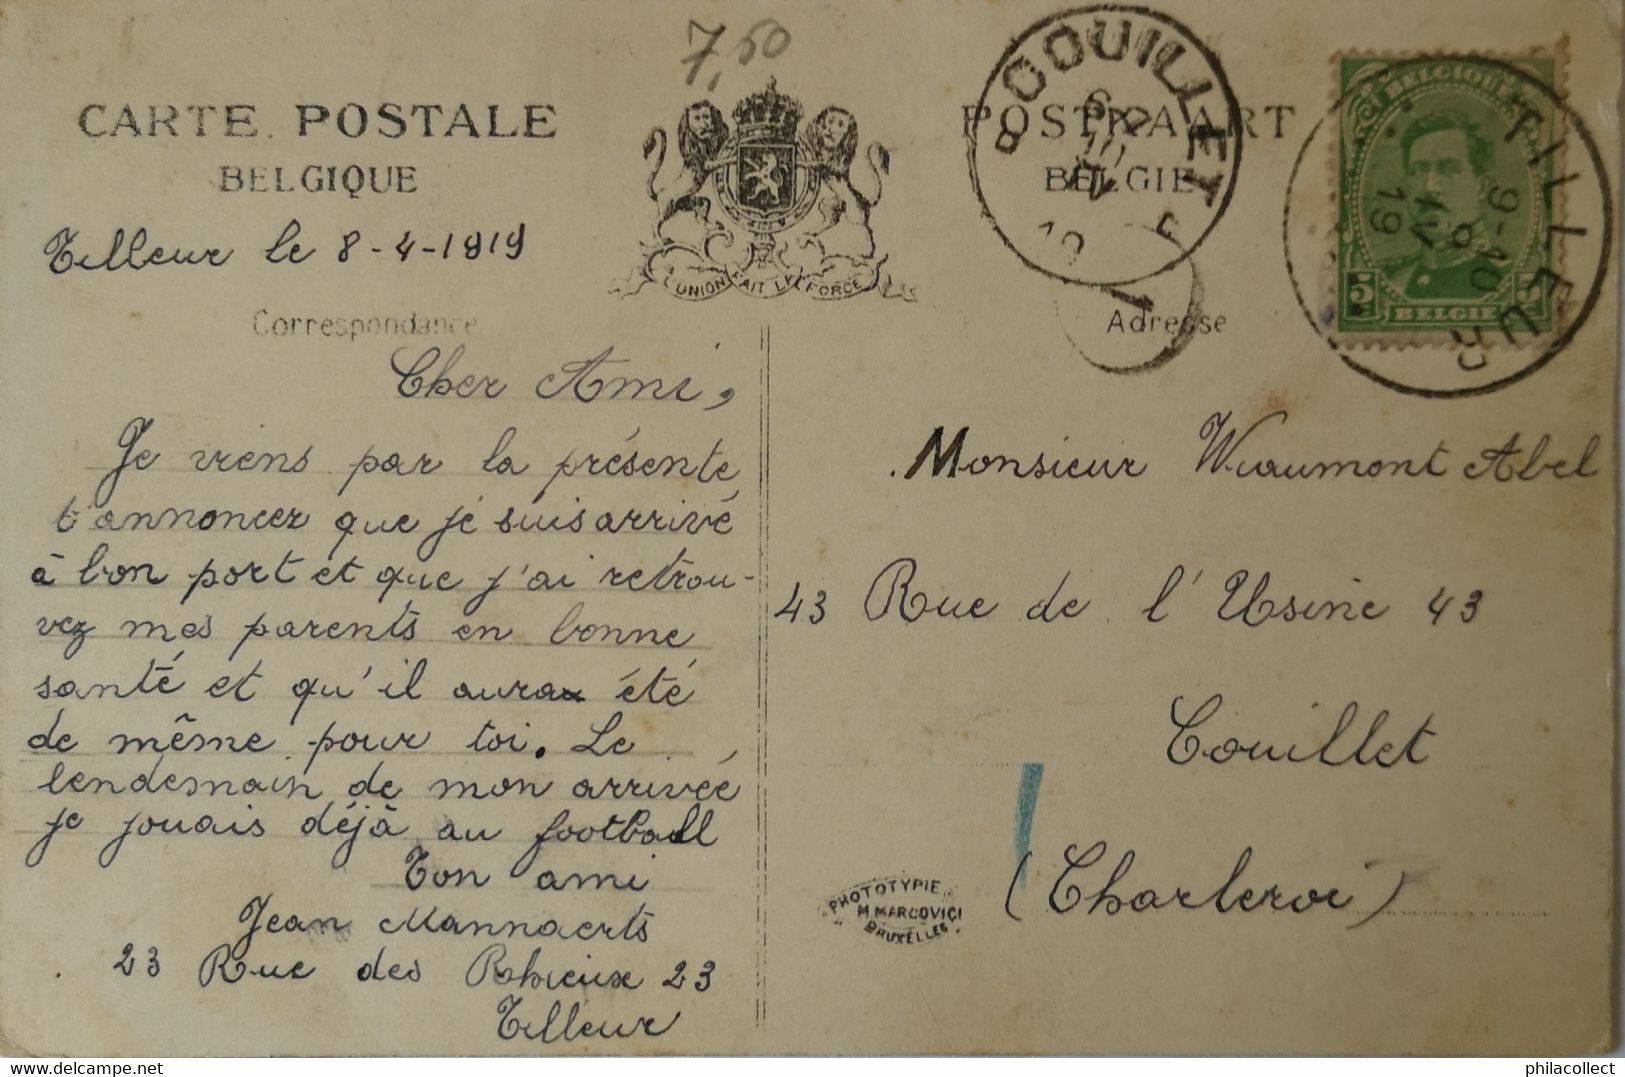 7,50
CARTE POSTALE
BELGIQUE
POSTKAART
BELGIE
L'UNION FAIT LA FORCE
COUILLET
TILLEUR
9-10
IV
19
BELGIQUE
5 5
BELGIE
Tilleur le 8-4-1919
Correspondance
Adresse
Cher Ami,
Je viens par la présente
t'annoncer que je suis arrivé
à bon port et que j'ai retrou-
vez mes parents en bonne
santé et qu'il aura été
de même pour toi. Le
lendemain de mon arrivée
je jouais déjà au football
Ton ami
Jean Mannaerts
23 Rue des Rhieux 23
Tilleur
Monsieur Wiaumont Abel
43 Rue de l'Usine 43
Couillet
(Charleroi)
PHOTOTYPIE
M. MARCOVICI
BRUXELLES
philacollect